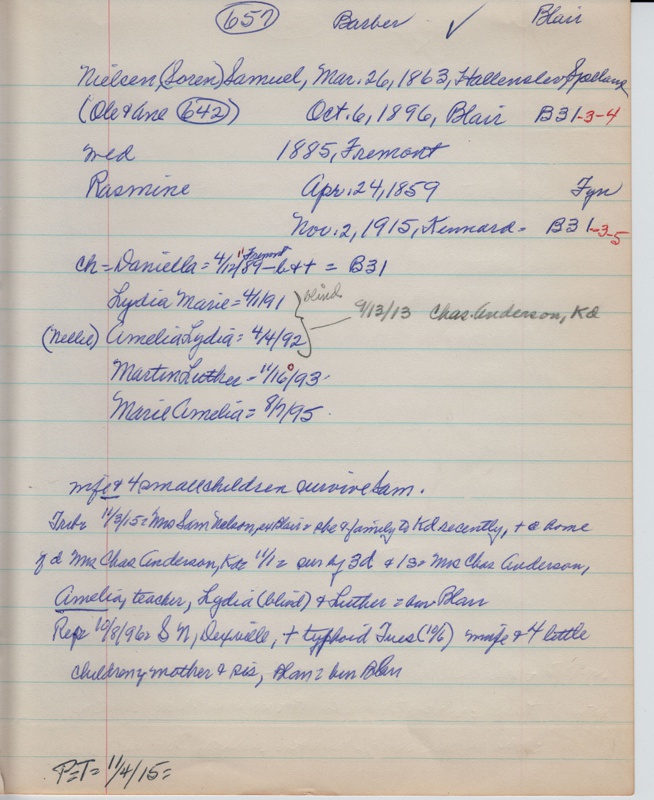 657 Barber ✓ Blair
Nielsen, (Soren) Samuel, Mar. 26, 1863, Hallenslev, 
(Ole & Ane 642) Oct. 6, 1896, Blair B31-3-4
med 1885, Fremont
Rasmine Apr. 24, 1859 Fyn
Nov. 2, 1915, Kennard = B31-3-5
ch = Daniella = 4/12/89 - b & t = B31
Fremont
Lydia Marie = 4/1/91 blind
(Nellie) Amelia Lydia = 4/4/92 9/13/13 Chas. Anderson, Kd
Martin Luther = 11/16/93
Marie Amelia = 8/7/95
wife & 4 small children survive Sam.
Trib = 11/3/15 = Mrs Sam Nelson, ex Blair = she & family to Kd recently, + @ home
of d Mrs Chas Anderson, Kd = 11/1 = sur by 3d & 1s = Mrs Chas Anderson,
Amelia, teacher, Lydia (blind) & Luther = bur Blair
Rep = 10/8/96 = S N, Dexville, + typhoid Tues (10/6) wife & 4 little
children, mother & sis, Blair = bur Blair
P=T= 11/4/15=